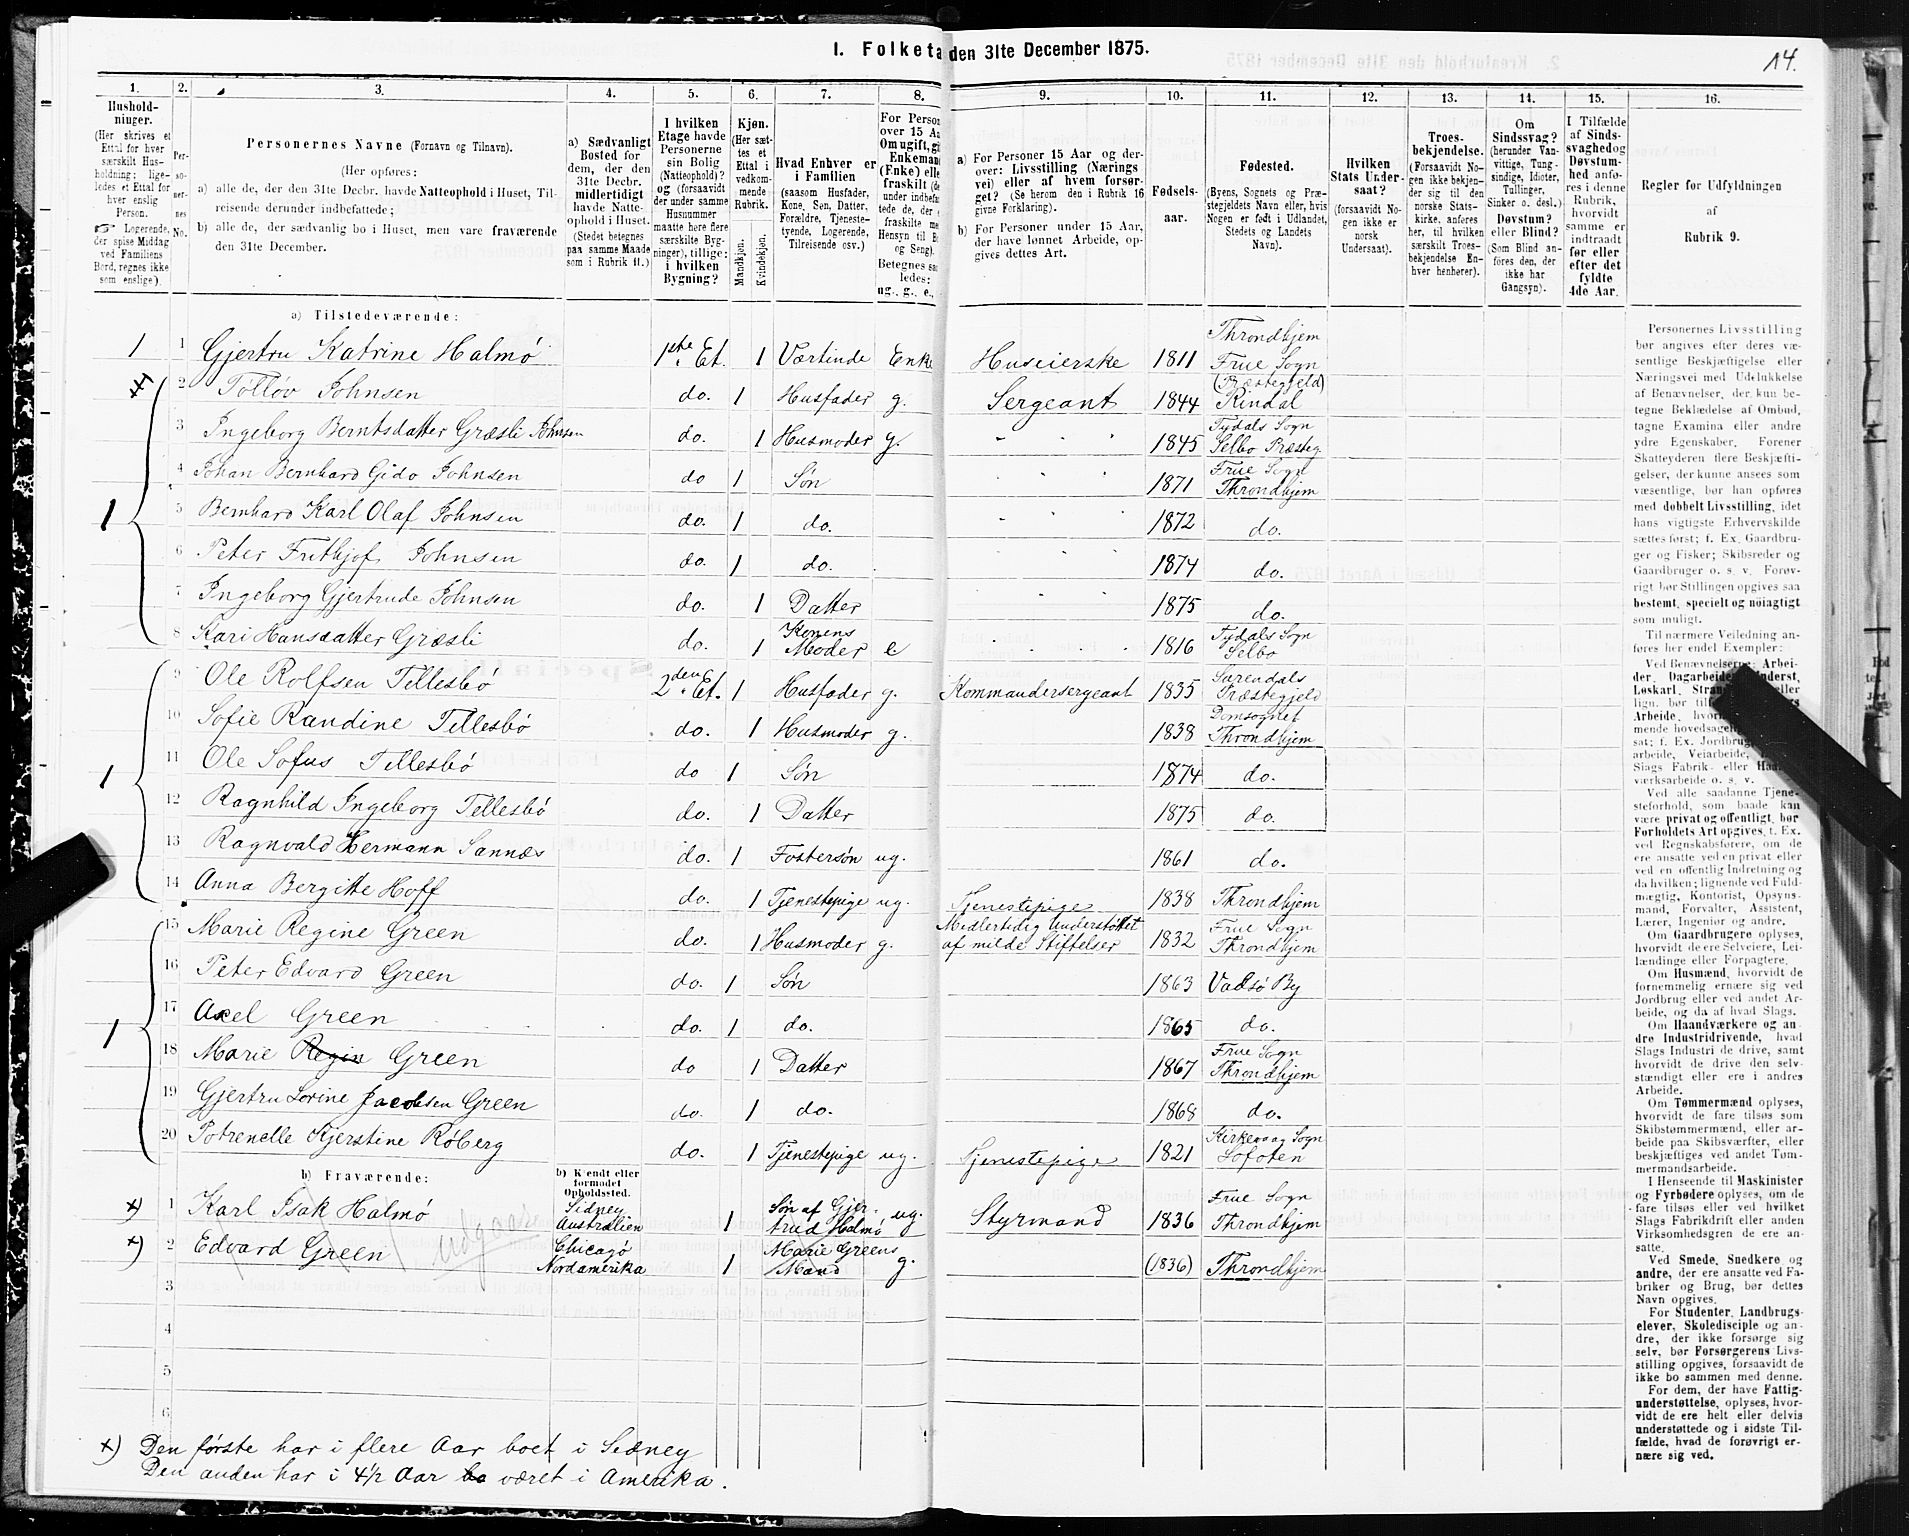 I. Folketa den 31te December 1875.
14.
1. 2. 3. 4. 5. 6. 7. 8. 9. 10. 11. 12. 13. 14. 15. 16.
Hushold-
ninger.
(Her skrives et
Ettal for hver
særskilt Hus-
holdning; lige-
ledes et Ettal for
hver enslig
Person.
Logerende,
der spise Middag
ved Familiens
Bord, regnes ikke
som enslige).
Per-
so-
ner-
nes
No.
Personernes Navne (Fornavn og Tilnavn).
(Her opføres:
a) alle de, der den 31te Decbr. havde Natteophold i Huset, Til-
reisende derunder indbefattede;
b) alle de, der sædvanlig bo i Huset, men vare fraværende
den 31te December.
a) Sædvanligt
Bosted for
dem, der den
31te Decbr.
midlertidigt
havde Natte-
ophold i Huset.
(Stedet betegnes
paa samme Maade
som i Rubrik 11.)
I hvilken
Etage havde
Personerne
sin Bolig
(Natteophold)?
og (forsaavidt
der under samme
Husnummer
maatte høre flere
særskilte Byg-
ninger), tillige:
i hvilken
Bygning?
Kjøn.
(Her sæt-
tes et
Ettal i
vedkom-
mende
Rubrik.
Mandkjøn.
Kvindekjøn.
Hvad Enhver er
i Familien
(saasom Husfader,
Kone, Søn, Datter,
Forældre, Tjeneste-
tyende, Logerende,
Tilreisende osv.)
For Person
over 15 Aa
Om ugift, gi
Enkemand
(Enke) elle
fraskilt (de
under indbefa
tede de, der e
fraskilte me
Hensyn til B
og Seng).
Betegnes saa
ledes:
ug., g., e.,
a) For Personer 15 Aar og der-
over: Livsstilling (Nærings
vei) eller af hvem forsør-
get? (Se herom den i Rubrik 16
givne Forklaring).
b) For Personer under 15 Aar,
der have lønnet Arbeide, op-
gives dettes Art.
Fødsels-
aar.
Fødested.
(Byens, Sognets og Præ-
stegjeldets Navn eller, hvis
Nogen er født i Udlandet,
Stedets og Landets
Navn).
Hvilken
Stats Under-
saat?
(forsaavidt No-
gen ikke er
norsk
Undersaat).
Troes-
bekjendelse.
(Forsaavidt No-
gen ikke bekjen-
der sig til den
norske Stats-
kirke, anføres
her, til hvilken
særskilt Troes-
bekjendelse En-
hver henhører).
Om
Sindssvag?
(herunder Van-
vittige, Tung-
sindige, Idioter,
Tullinger,
Sinker o. desl.)
Døvstum?
eller Blind?
(Som Blind an-
føres den, der
ikke har
Gangsyn).
I Tilfælde
af Sinds-
svaghed og
Døvstum-
hed anfø-
res i denne
Rubrik,
hvorvidt
samme er
indtraadt
før eller
efter det
fyldte
4de Aar.
Regler for Udfyldningen
af
Rubrik 9.
a) Tilstedeværende:
1 1 Gjertru Katrine Halmø 1ste Et. 1 Værtinde Enke Huseierske 1811 Throndhjem Frue Sogn
x) 2 Tolløv Johnsen do. 1 Husfader g. Sergeant 1844 (Præstegjeld) Rindal
3 Ingeborg Berntsdatter Græsli Johnsen do. 1 Husmoder g. 1845 Tydals Sogn Selbo Præsteg
4 Johan Bernhard Gido Johnsen do 1 Søn 1871 Frue Sogn Throndhjem
1 5 Bernhard Karl Olaf Johnsen do. 1 do. 1872 do.
6 Peter Frithjof Johnsen do. 1 do. 1874 do.
7 Ingeborg Gjertrude Johnsen do. 1 Datter 1875 do.
8 Kari Hansdatter Græsli do. 1 Konens Moder e 1816 Tydals Sogn Selbo
9 Ole Rolfsen Tellesbø 2den Et. 1 Husfader g. Kommandersergeant 1835 Surendals Præstegjeld
10 Sofie Randine Tellesbø do. 1 Husmoder g. 1838 Domsognet Throndhjem
1 11 Ole Sofus Tellesbø do 1 Søn 1874 do.
12 Ragnhild Ingeborg Tellesbø do. 1 Datter 1875 do.
13 Ragnvald Hermann Sannæs do. 1 Fostersøn ug. 1861 do.
14 Anna Bergitte Hoff do. 1 Tjenestepige ug. Tjenestepige 1838 Throndhjem
15 Marie Regine Green do. 1 Husmoder g. Midlertidig Understøttet af milde Stiftelser 1832 Frue Sogn Throndhjem
16 Peter Edvard Green do. 1 Søn 1863 Vadsø By
1 17 Axel Green do. 1 do. 1865 do.
18 Marie Regin Green do 1 Datter 1867 Frue Sogn Throndhjem
19 Gjertru Lovine Jacobsen Green do. 1 do. 1868 do.
20 Potrenelle Kjerstine Røberg do. 1 Tjenestepige ug. Tjenestepige 1821 Kirkevaag Sogn Lofoten
b) Fraværende:
b) Kjendt eller
formodet
Opholdssted.
x) 1 Karl Isak Halmø Sidney Australien 1 Søn af Gjer- trud Halmø ug. Styrmand 1836 Frue Sogn Throndhjem
udgaar
x) 2 Edvard Green Chicago Nordamerika 1 Marie Greens Mand g. (1836) Throndhjem
3
4
5
6
x) Den første har i flere Aar boet i Sidney
Den anden har i 4½ Aar bo været i Amerika.
Personernes Livsstilling
bør angives efter deres væ-
sentlige Beskjæftigelse eller
Næringsvei med Udelukkelse
af Benævnelser, der kun be-
tegne Beklædelse af Ombud,
tagne Examina eller andre
ydre Egenskaber. Forener
Skatteyderen flere Beskjæfti-
gelser, der kunne ansees som
væsentlige, bør han opføres
med dobbelt Livsstilling, idet
hans vigtigste Erhvervskilde
sættes først; f. Ex. Gaardbru-
ger og Fisker; Skibsreder og
Gaardbruger o. s. v. Forøv-
rigt bør Stillingen opgives saa
bestemt, specielt og nøiagtigt
som muligt.
Til nærmere Veiledning an-
føres her endel Exempler:
Ved Benævnelserne: Arbei-
der, Dagarbeider, Inderst,
Løskarl, Stran eller
lign. bør til s
Arbeide, hvor
mende hovedsagelig
sat; f. Ex. Jordbrug,
arbeide, Veiarbeide,
Slags Fabrik- eller Haa
værksarbeide o. s. v.
Ved alle saadanne Tjene-
steforhold, som baade kan
være privat og offentligt, bør
Forholdets Art opgives, t. Ex.
ved Regnskabsførere, om de
ere ansatte ved en privat eller
ved en offentlig Indretning og
da hvilken; lignende ved Fuld-
mægtig, Kontorist, Opsyns-
mand, Forvalter, Assistent,
Lærer, Ingeniør og andre.
Om Gaardbrugere oplyses,
hvorvidt de ere Selveiere, Lei-
lændinge eller Forpagtere.
Om Husmænd, hvorvidt de
fornemmelig ernære sig ved
Jordbrug eller ved andet Ar-
beide, og da af hvad Slags.
Om Haandværkere og an-
dre Industridrivende, hvad
Slags Industri de drive, samt
hvorvidt de drive den selv-
stændigt eller ere i andres
Arbeide.
Om Tømmermænd oplyses,
hvorvidt de fare tilsøs som
Skibstømmermænd, eller ar-
beide paa Skibsværfter, eller
beskjæftiges ved andet Tøm-
mermandsarbeide.
I Henseende til Maskinister
og Fyrbødere oplyses, om de
fare tilsøs eller ved hvilket
Slags Fabrikdrift eller anden
Virksomhedsgren de ere an-
satte.
Ved Smede, Snedkere og
andre, der ere ansatte ved Fa-
briker og Brug, bør dettes
Navn opgives.
For Studenter, Landbrugs-
elever, Skoledisciple og an-
dre, der ikke forsørge sig
selv, bør Forsørgerens Livs-
stilling opgives, forsaavidt de
ikke bo sammen med denne.
For dem, der have Fattig-
understøttelse, oplyses, hvor-
vidt de ere helt eller delvis
understøttede og i sidste Til-
fælde, hvad de forøvrigt er-
nære sig ved.